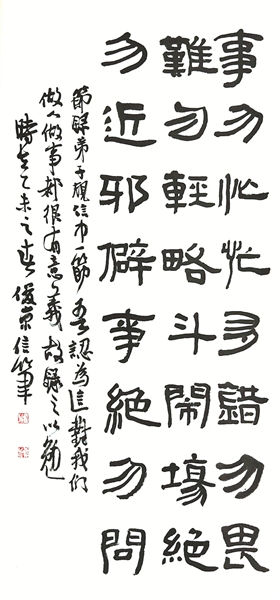 事勿忙忙多錯勿畏
難勿輕略斗鬧場絕
勿近邪僻事絕勿問
節録弟子規信中一節吾認為這對我們
做人做事都很有意義故録之以勉
時在乙未之春信筆